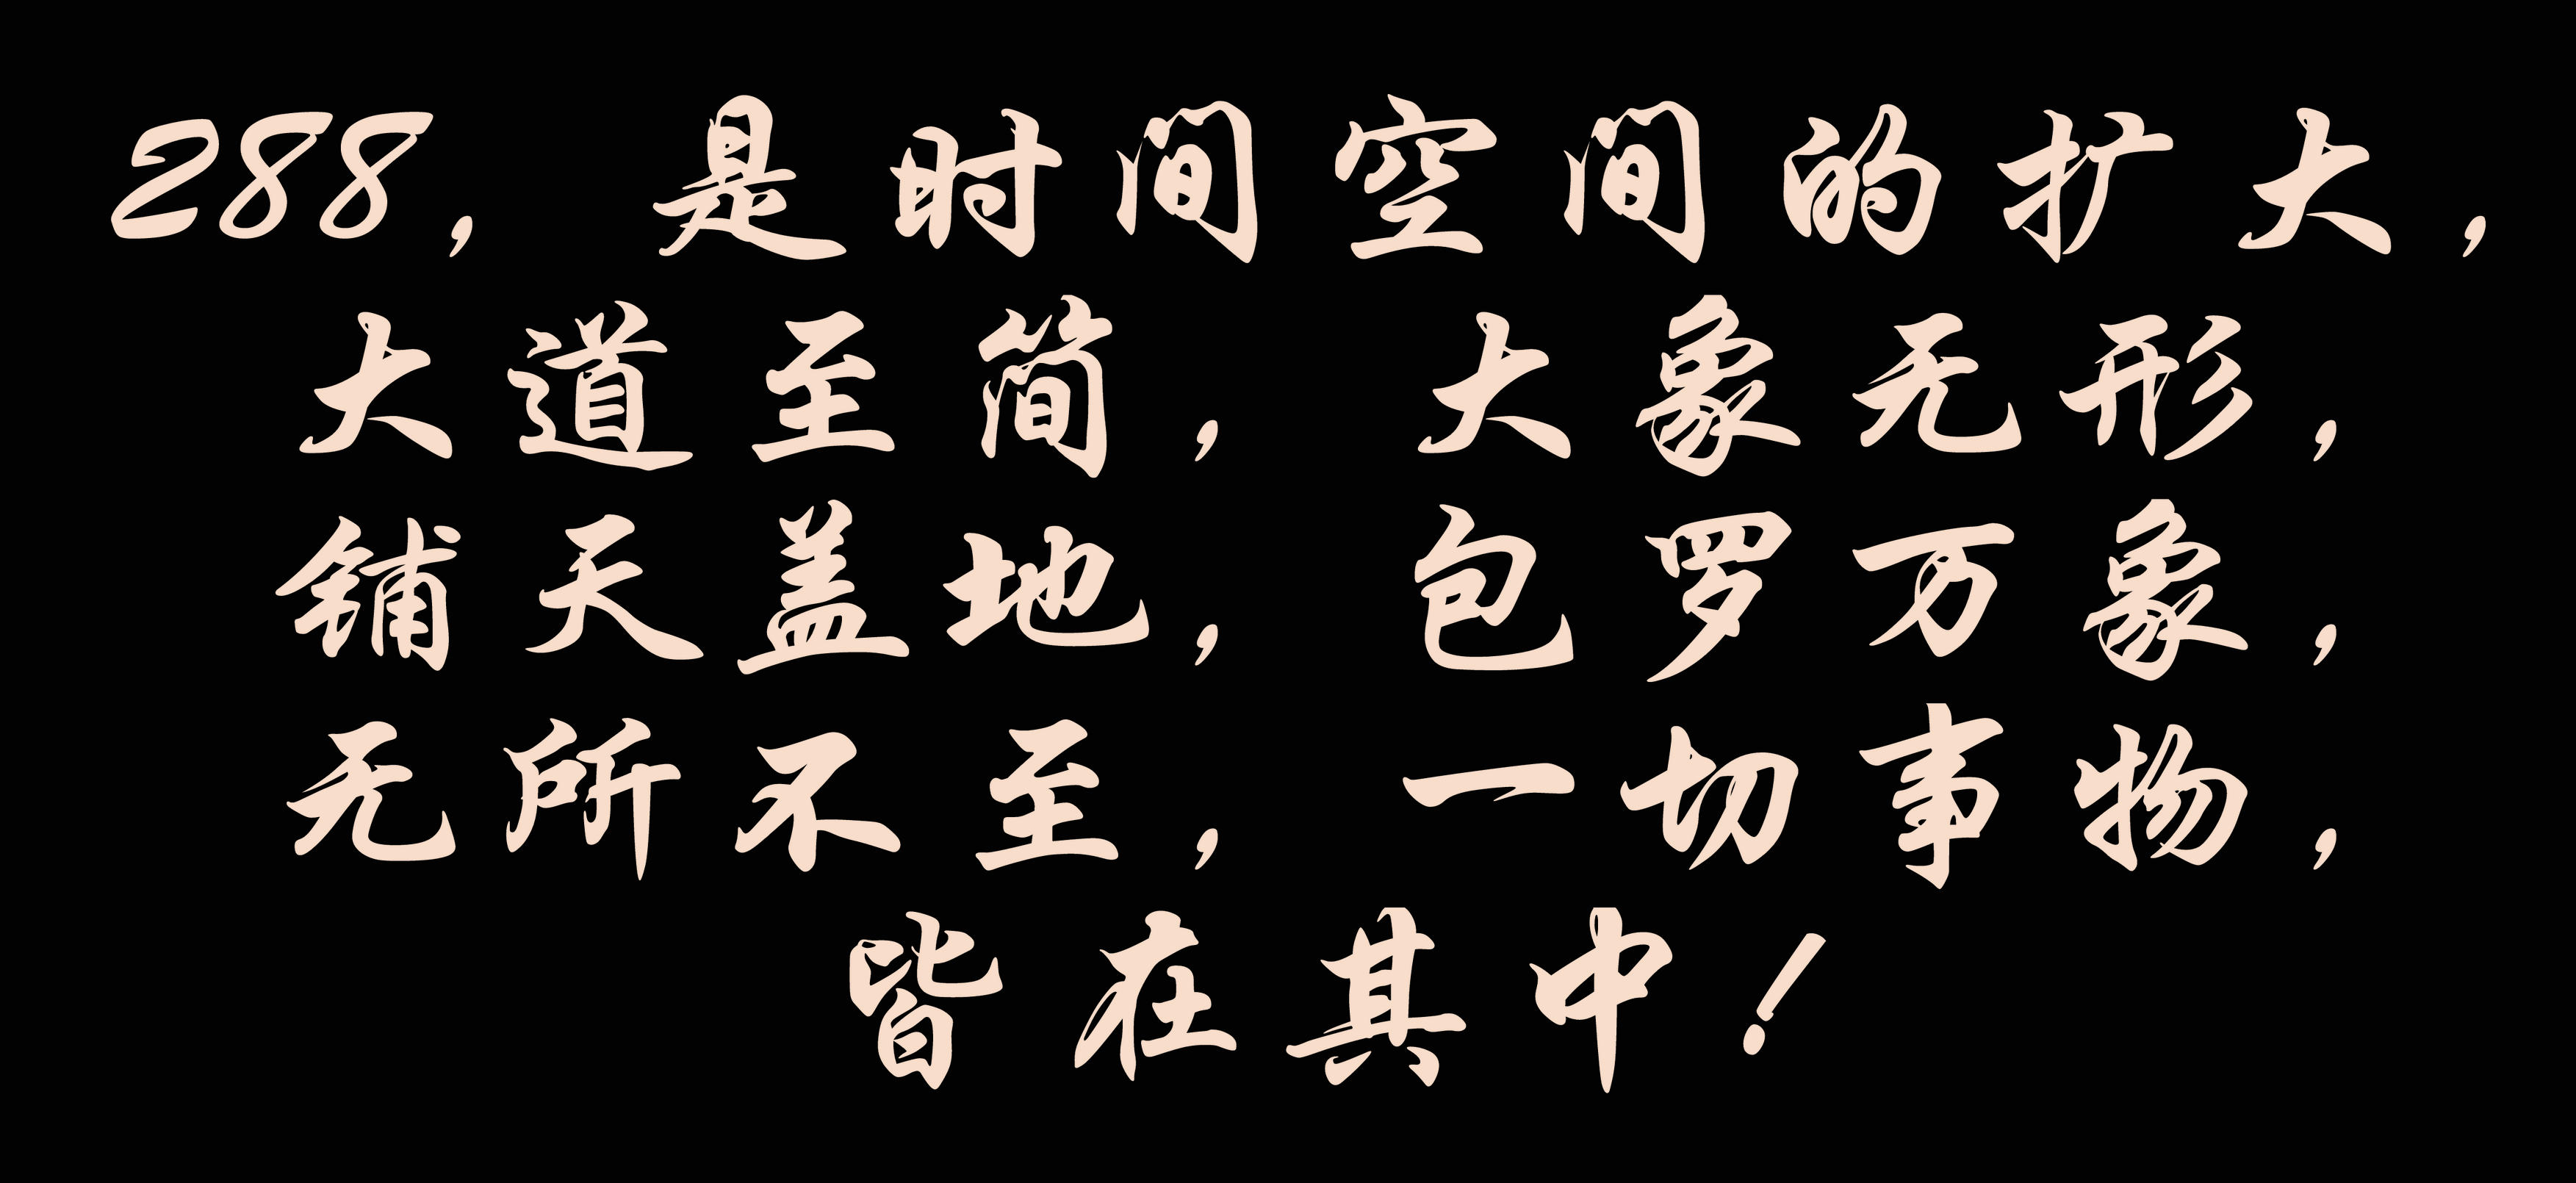 288，是时间空间的扩大，
大道至简，大象无形，
铺天盖地，包罗万象，
无所不至，一切事物，
皆在其中！